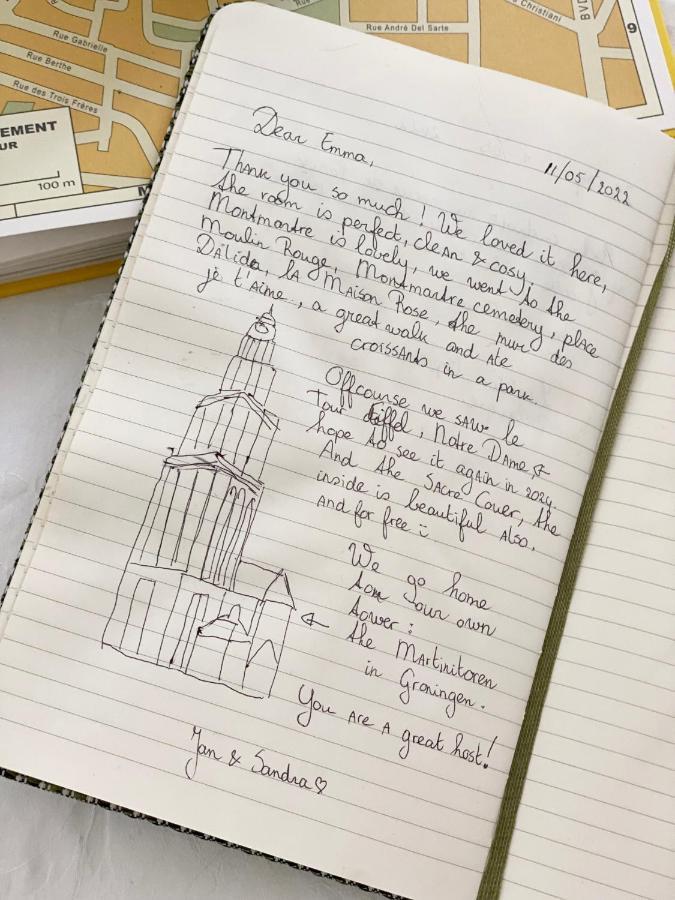 Rue Gabrielle
Rue Berthe
Rue des Trois Frères
EMENT
UR
100 m
M
Rue
Rue André Del Sarte
Christiani
BVD
9
Dear Emma,
11/05/2022
Thank you so much! We loved it here,
the room is perfect, clean & cosy.
Montmartre is lovely, we went to the
Moulin Rouge, Montmartre cemetery, place
Dalida, la Maison Rose, the mur des
je t'aime, a great walk and ate
croissants in a park.
Offcourse we saw le
Tour Eiffel, Notre Dame &
hope to see it again in 2024.
And the Sacre Couer, the
inside is beautiful also.
and for free :
We go home
tom your own
tower:
the Martinitoren
in Groningen.
You are a great host!
Jan & Sandra ♡